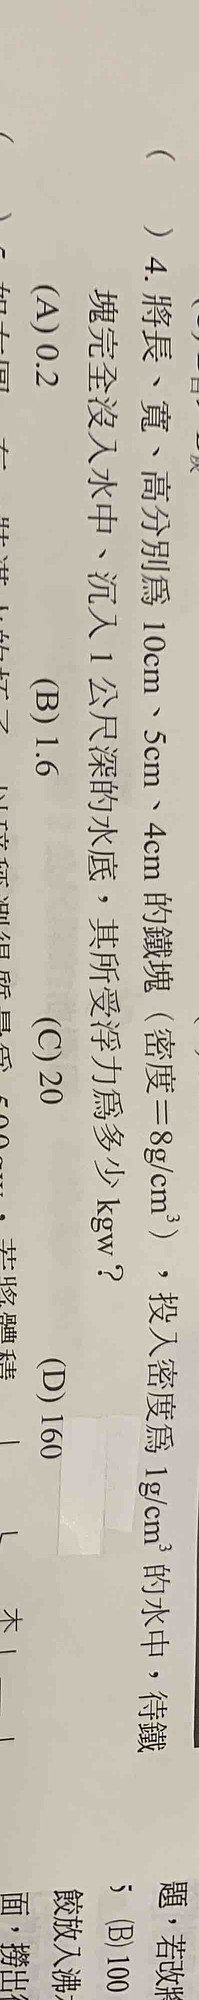 (　　) 4. 將長、寬、高分別為 10cm、5cm、4cm 的鐵塊（密度＝8g/cm³），投入密度為 1g/cm³ 的水中，待鐵
塊完全沒入水中、沉入 1 公尺深的水底，其所受浮力為多少 kgw？
(A) 0.2　(B) 1.6　(C) 20　(D) 160
題，若改將
5 (B) 100
餃放入沸
面，撈出